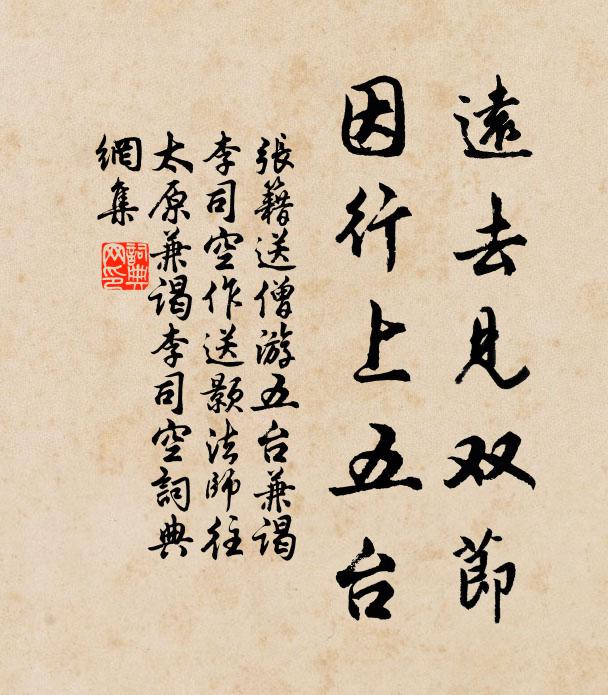 遠去見双節
因行上五台
張籍送僧游五台兼謁
李司空作送顥法師往
太原兼謁李司空詞典
網集
詞典
网印